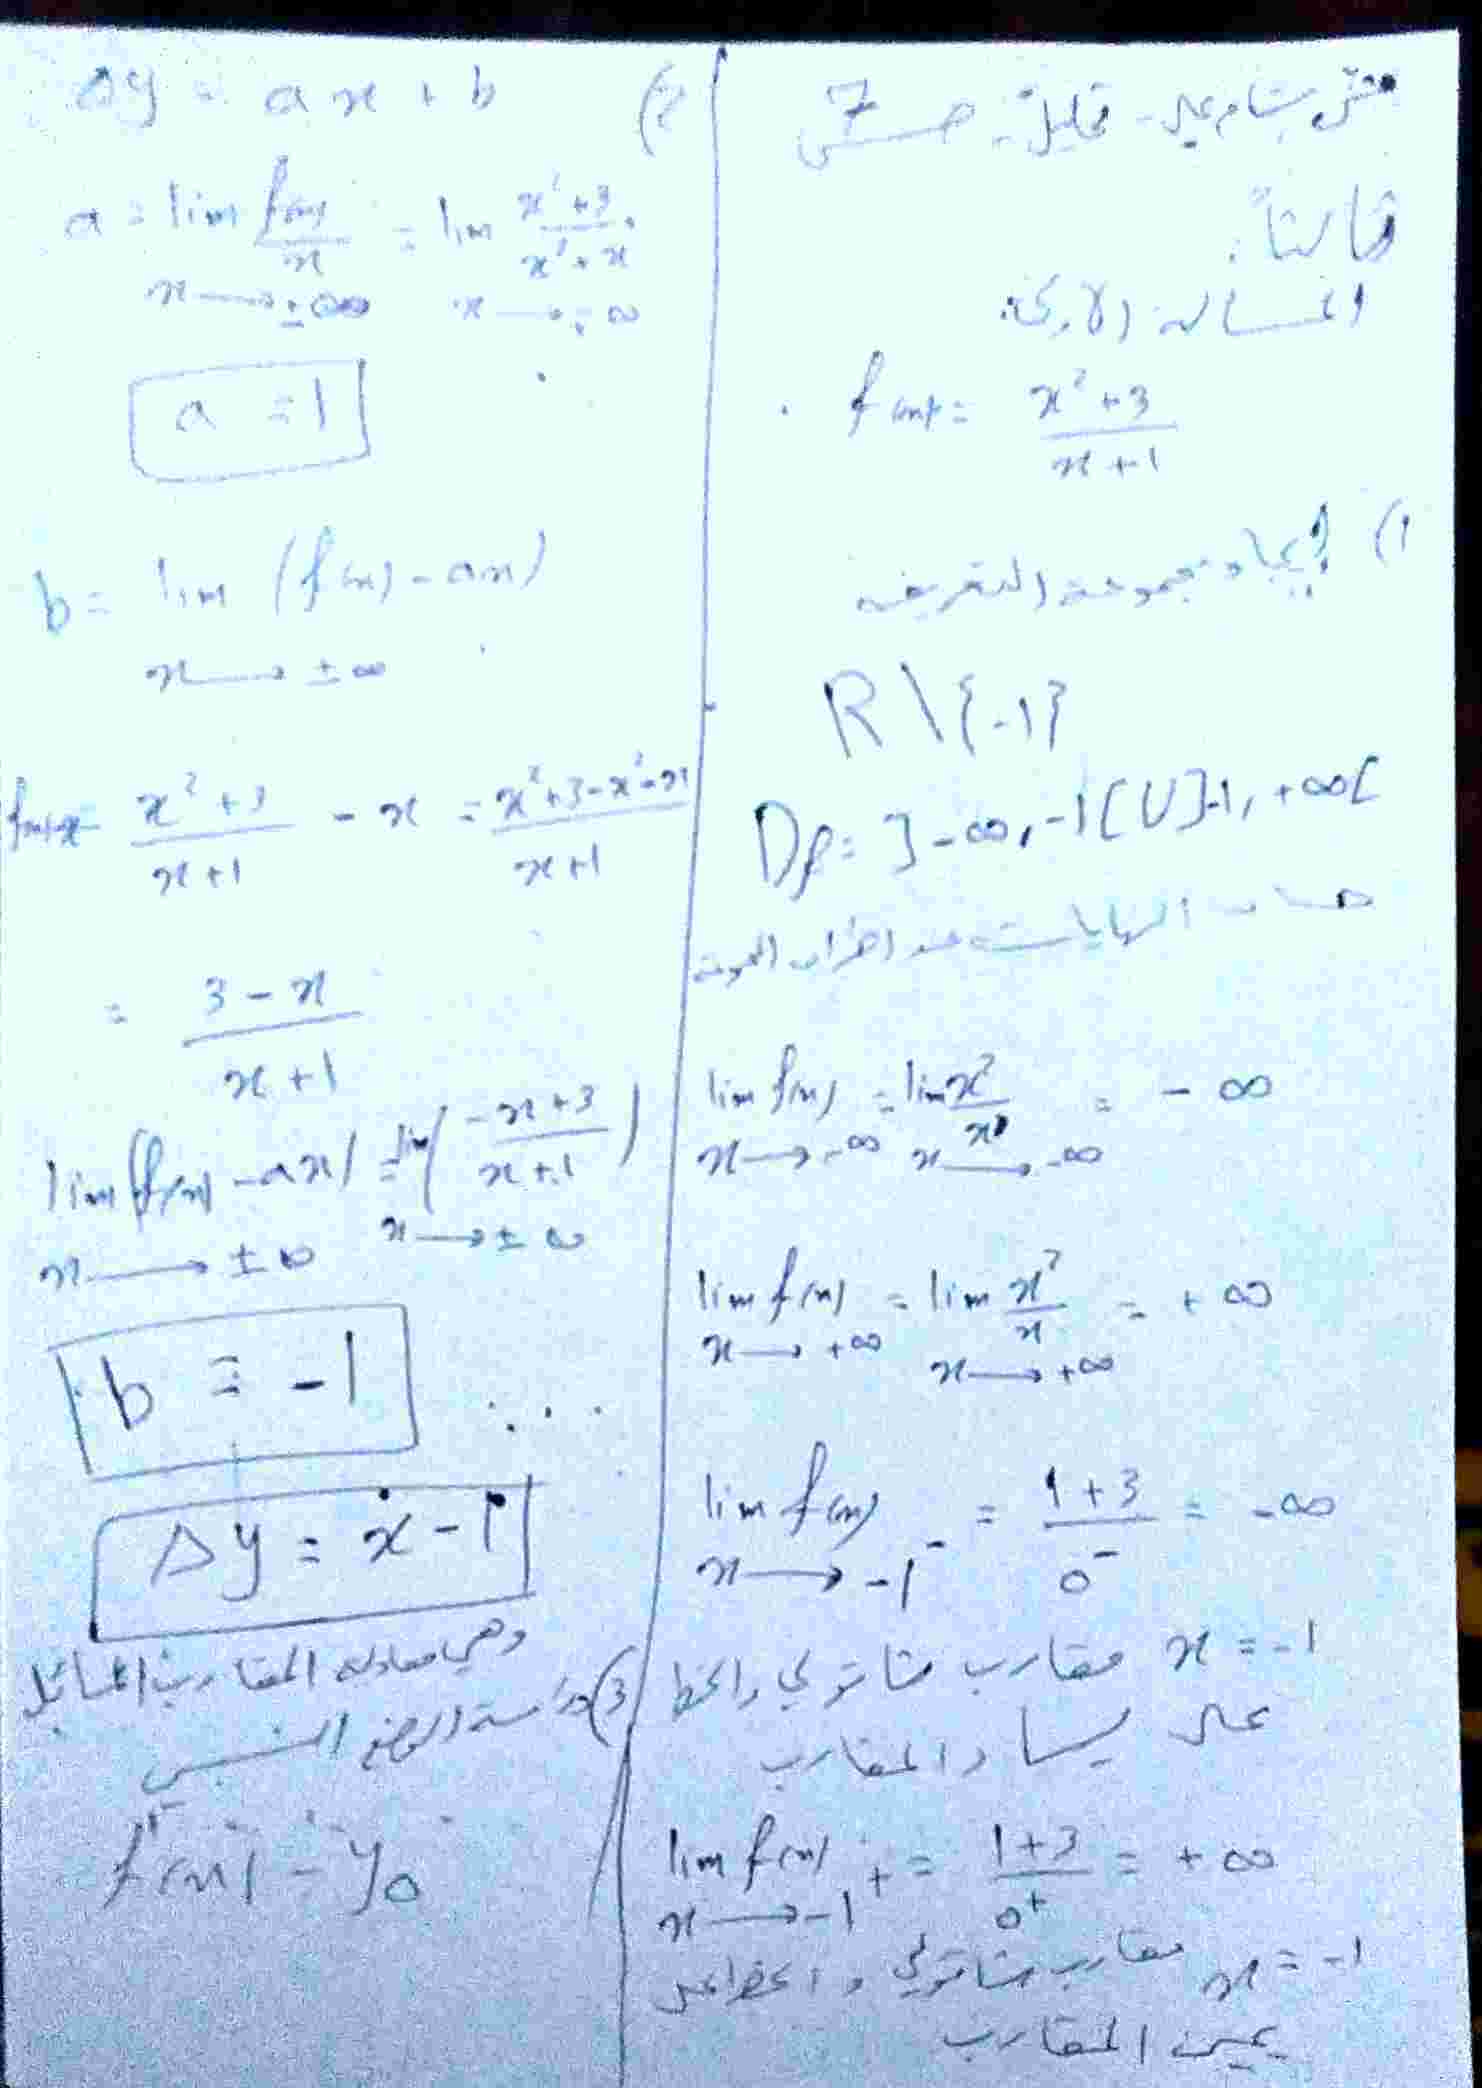 تحليل - ص 7
ثالثاً:
المسألة الأولى:
f(x) = \frac{x^2+3}{x+1}
1) إيجاد مجموعة التعريف
R \ {-1}
Df = ]-∞, -1[ U ]-1, +∞[
حساب النهايات عند اطراف المجموعة
lim f(x) = lim \frac{x^2}{x} = -∞
x → -∞ x → -∞
lim f(x) = lim \frac{x^2}{x} = +∞
x → +∞ x → +∞
lim f(x) = \frac{1+3}{0^-} = -∞
x → -1^-
x = -1 مقارب شاقولي والخط
على يسار المقارب
lim f(x) = \frac{1+3}{0^+} = +∞
x → -1^+
x = -1 مقارب شاقولي والخط على
يمين المقارب
2) Δy = ax + b
a = lim \frac{f(x)}{x} = lim \frac{x^2+3}{x^2+x}
x → ±∞ x → ±∞
a = 1
b = lim (f(x) - ax)
x → ±∞
f(x)-x = \frac{x^2+3}{x+1} - x = \frac{x^2+3-x^2-x}{x+1}
= \frac{3-x}{x+1}
lim (f(x) - ax) = lim (\frac{-x+3}{x+1})
x → ±∞ x → ±∞
b = -1
Δy = x - 1
وهي معادلة المقارب المائل
3) دراسة الوضع النسبي
f(x) - y_Δ